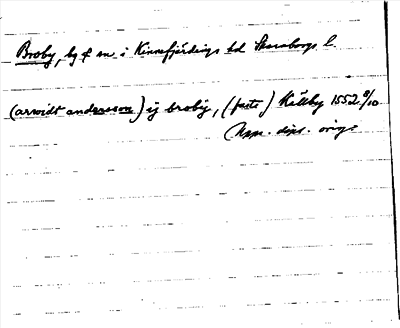 Broby, by f sn i Kinnefjärdings hd Skaraborgs l.
(arwidt andersson) ij broby, (fasta) Källby 1552 8/10
Upps. dipl. orig.